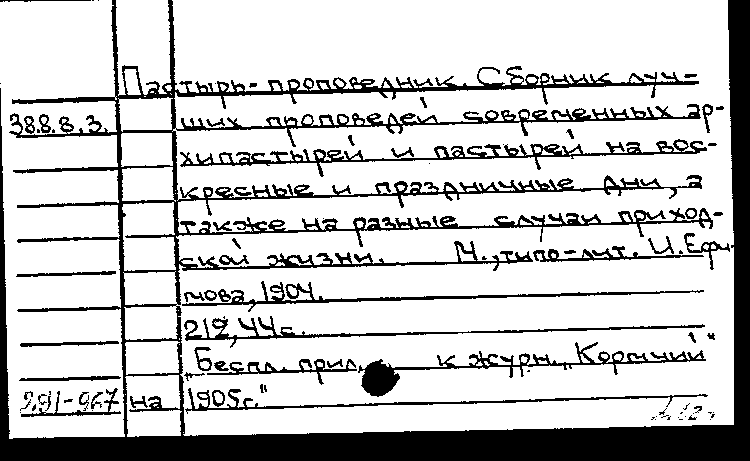 Пастырь-проповедник. Сборник луч-
38.8.8.3. ших проповедей современных ар-
хипастырей и пастырей на вос-
кресные и праздничные дни, а
также на разные случаи приход-
ской жизни. М., типо-лит. И.Ефи-
мова, 1904.
219, 44с.
"Беспл. прил. к журн. "Кормчий"
291-967 на 1905г."